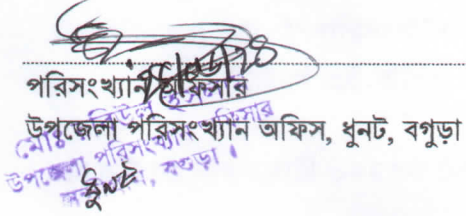 পরিসংখ্যান অফিসার
উপজেলা পরিসংখ্যান অফিস, ধুনট, বগুড়া
মোঃ
উপজেলা পরিসংখ্যান অফিসার
বগুড়া।
ধুনট